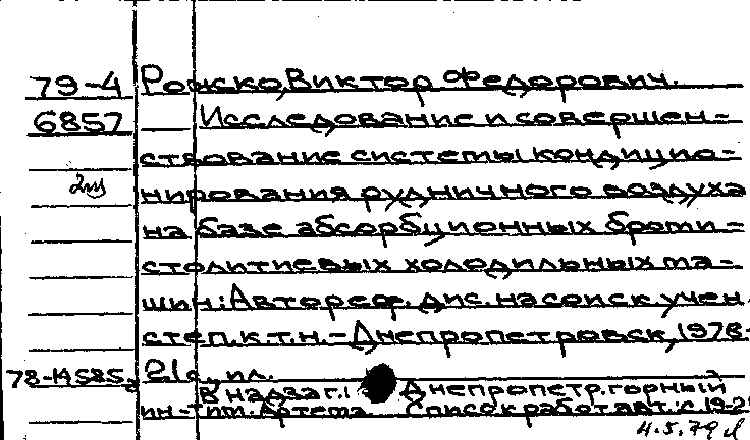 79-4 Рожко, Виктор Федорович.
6857 Исследование и совершен-
ствование системы кондицио-
нирования рудничного воздуха
на базе абсорбционных броми-
столитиевых холодильных ма-
шин: Автореф. дис. на соиск. учен.
степ. к.т.н. - Днепропетровск, 1978.-
78-14585 21с., ил.
В надзаг.: Днепропетр. горный
ин-т им. Артема. Список работ авт.: с. 19-21
4.5.79